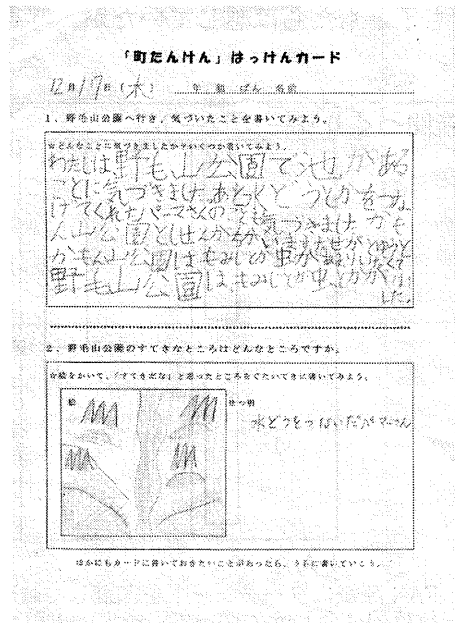 「町たんけん」はっけんカード
12月17日(木) 年 組 ばん 名前
1、野毛山公園へ行き、気づいたことを書いてみよう。
☆どんなことに気づきましたか?いくつか書いてみよう。
わたしは、野毛山公園で池がある
ことに気づきました。あと水どうとかをつな
げてくれたパーマさんのことも気づきました。かも
ん山公園としぜんがちがいます。なぜかとゆうと
かもん山公園はもみじとか虫があまりいなくて
野毛山公園はもみじとか虫とかが
した。
2、野毛山公園のすてきなところはどんなところですか。
☆絵をかいて、「すてきだな」と思ったところをぐたいてきに書いてみよう。
絵
せつ明
水どうをつないだパーマさん
ほかにもカードに書いておきたいことがあったら、うらに書いていこう。